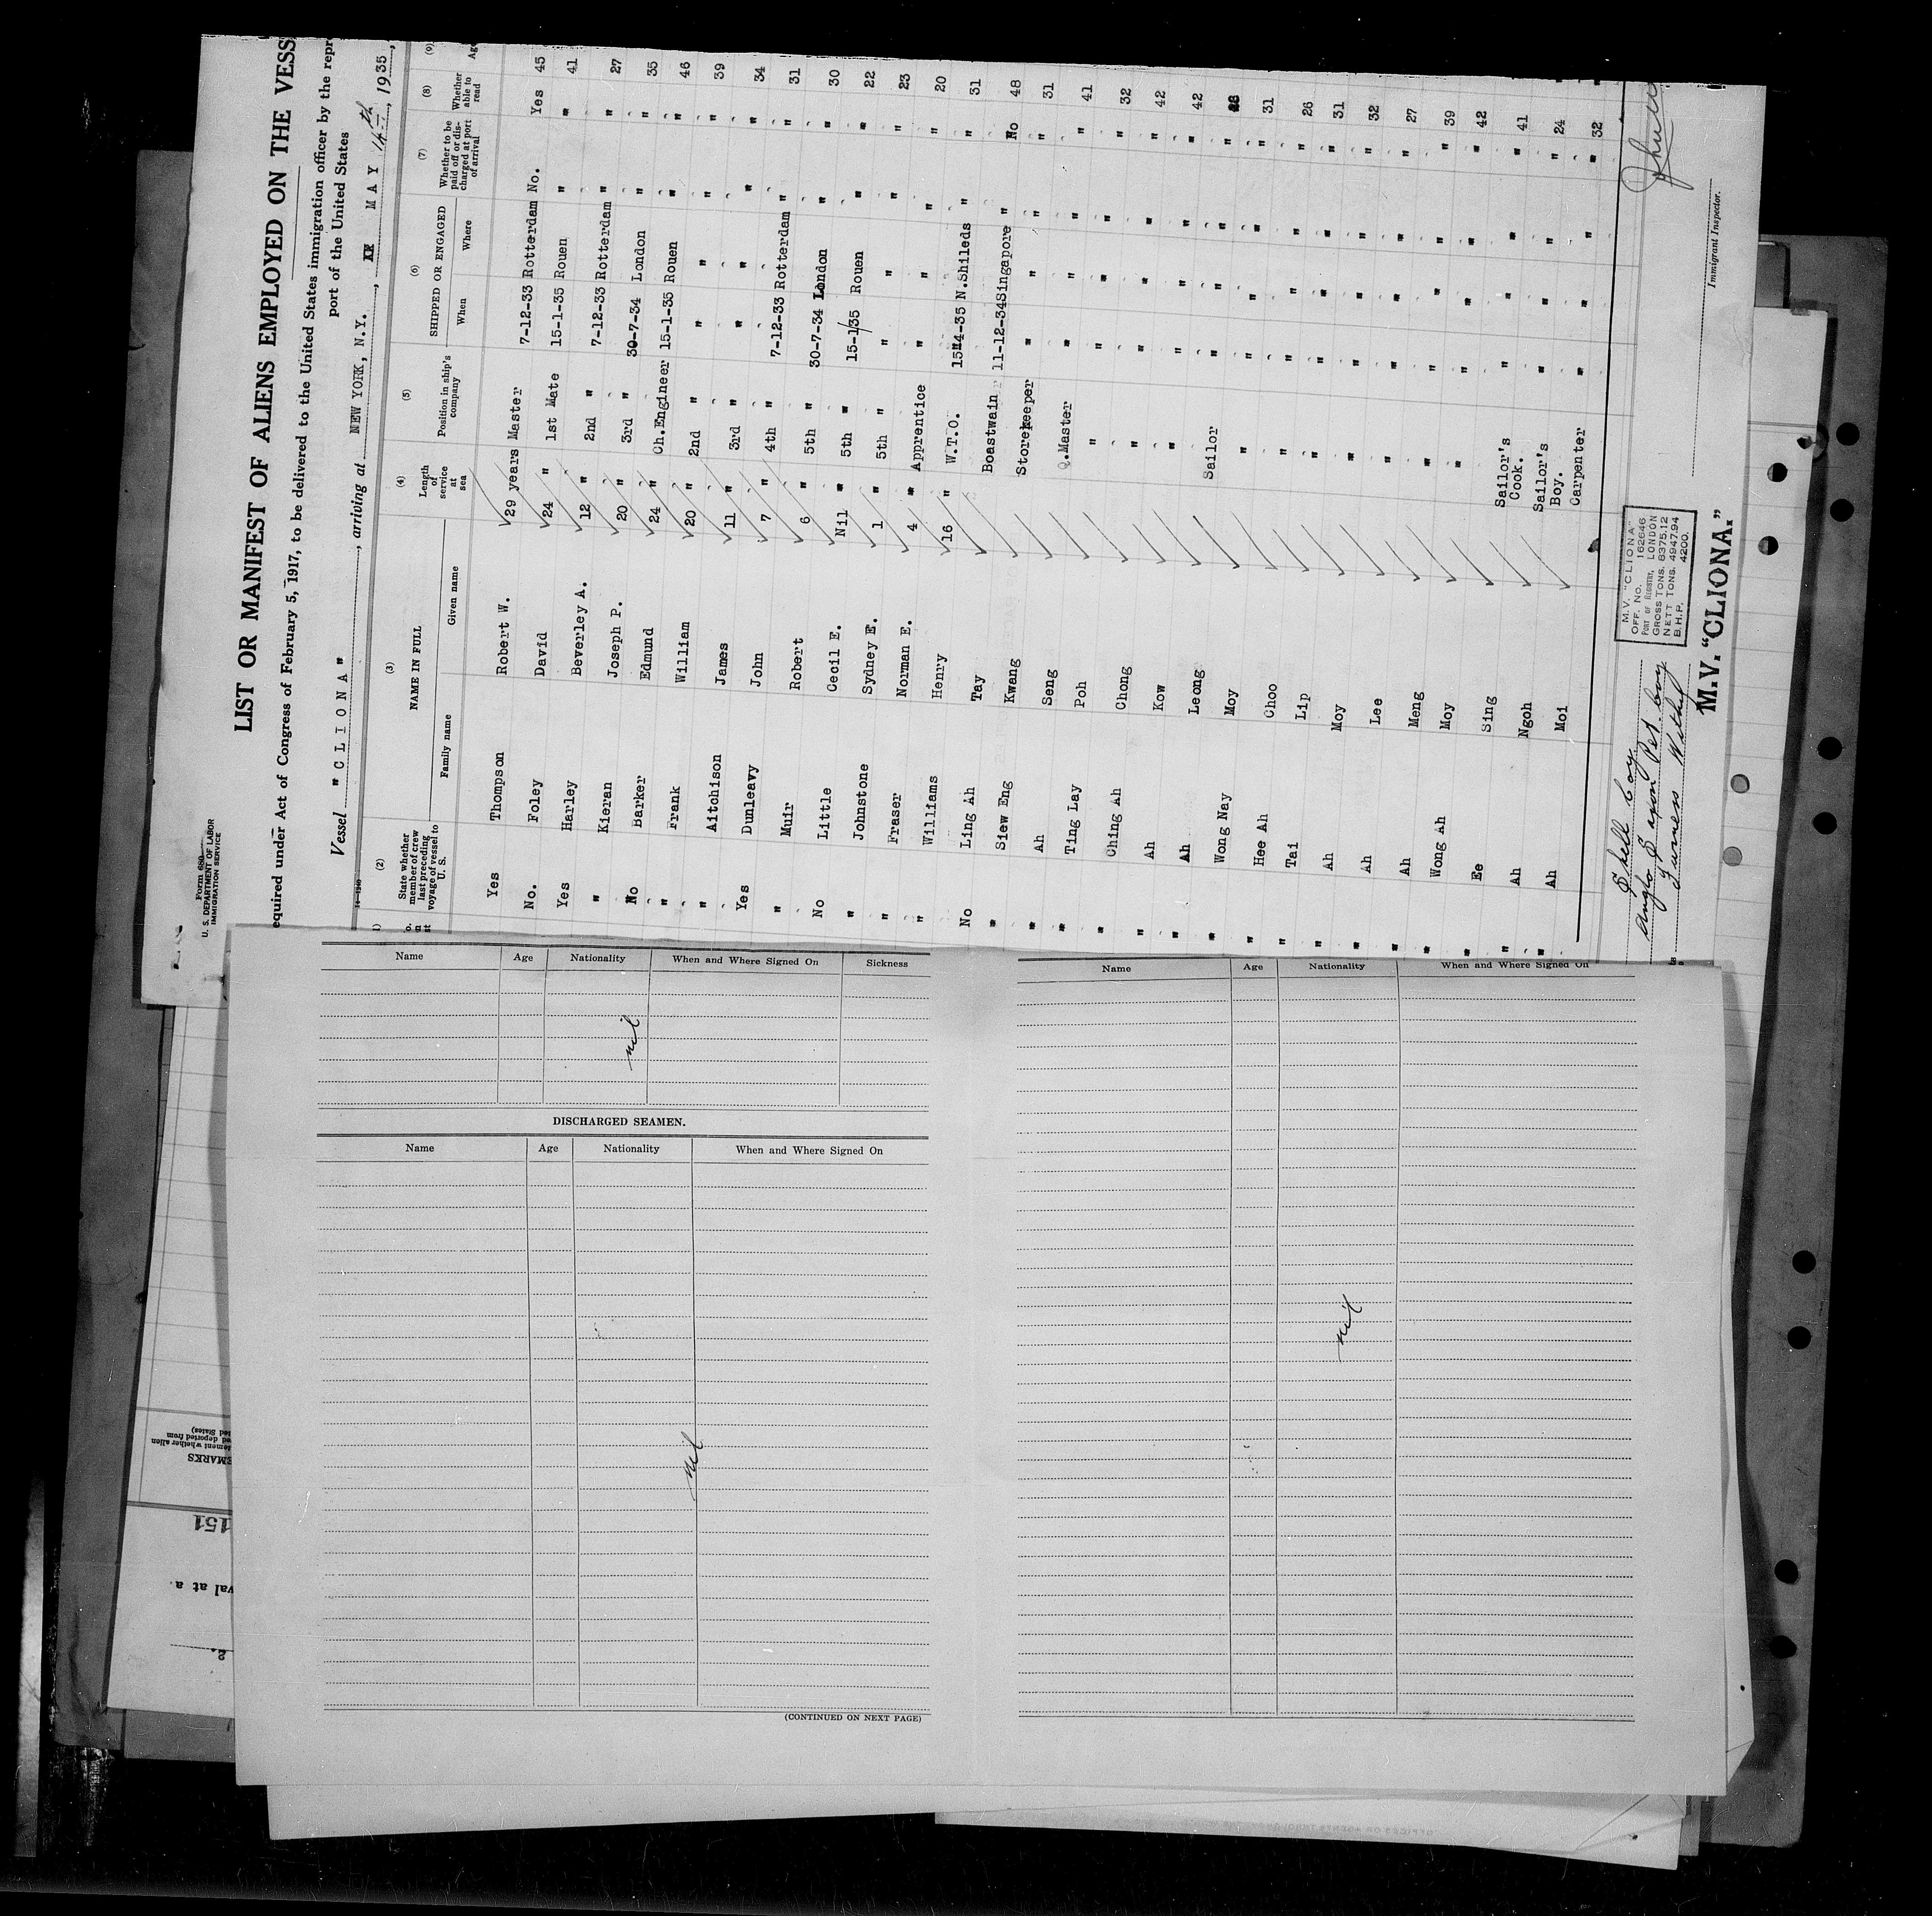 Form 680
U. S. DEPARTMENT OF LABOR
IMMIGRATION SERVICE
LIST OR MANIFEST OF ALIENS EMPLOYED ON THE VESS
equired under Act of Congress of February 5, 1917, to be delivered to the United States immigration officer by the repr
port of the United States
Vessel "CLIONA", arriving at NEW YORK, N.Y., MAY 14th, 1935,
(2) (3) (4) (5) (6) (7) (8) (9)
State whether member of crew last preceding voyage of vessel to U. S. NAME IN FULL Family name Given name Length of service at sea Position in ship's company SHIPPED OR ENGAGED When Where Whether to be paid off or discharged at port of arrival Whether able to read Ag
Yes Thompson Robert W. 29 years Master 7-12-33 Rotterdam No. Yes 45
No. Foley David 24 " 1st Mate 15-1-35 Rouen " " 41
Yes Harley Beverley A. 12 " 2nd " 7-12-33 Rotterdam " " 27
" Kieran Joseph P. 20 " 3rd " 30-7-34 London " " 35
No Barker Edmund 24 " Ch.Engineer 15-1-35 Rouen " " 46
" Frank William 20 " 2nd " " " " " 39
" Aitchison James 11 " 3rd " " " " " 34
Yes Dunleavy John 7 " 4th " 7-12-33 Rotterdam " " 31
" Muir Robert 6 " 5th " 30-7-34 London " " 30
No Little Cecil E. Nil " 5th " 15-1-35 Rouen " " 22
" Johnstone Sydney E. 1 " 5th " " " " " 23
" Fraser Norman E. 4 " Apprentice " " " " 20
" Williams Henry 16 " W.T.O. 15-4-35 N.Shileds " " 31
No Ling Ah Tay Boastwain 11-12-34 Singapore " No 48
" Siew Eng Kwang Storekeeper " " " " 31
" Ah Seng Q.Master " " " " 41
" Ting Lay Poh " " " " " 32
" Ching Ah Chong " " " " " 42
" Ah Kow " " " " " 42
" Ah Leong Sailor " " " "
" Wong Nay Moy " " " " " 31
" Hee Ah Choo " " " " " 26
" Tai Lip " " " " " 31
" Ah Moy " " " " " 32
" Ah Lee " " " " " 27
" Ah Meng " " " " " 39
" Wong Ah Moy " " " " " 42
" Ee Sing Sailor's Cook. " " " " 41
" Ah Ngoh Sailor's Boy. " " " " 24
" Ah Moi Carpenter " " " " 32
Shell boy
Anglo Saxon Pet. boy
Furness Withy
M.V. "CLIONA"
OFF. NO. 162646
PORT OF REGISTRY, LONDON
GROSS TONS. 8375.12
NETT TONS. 4947.94
B.H.P. 4200.
M.V. "CLIONA."
Immigrant Inspector.
Name Age Nationality When and Where Signed On Sickness
nil
DISCHARGED SEAMEN.
Name Age Nationality When and Where Signed On
nil
(CONTINUED ON NEXT PAGE)
Name Age Nationality When and Where Signed On
nil
EMARKS
151
val at a